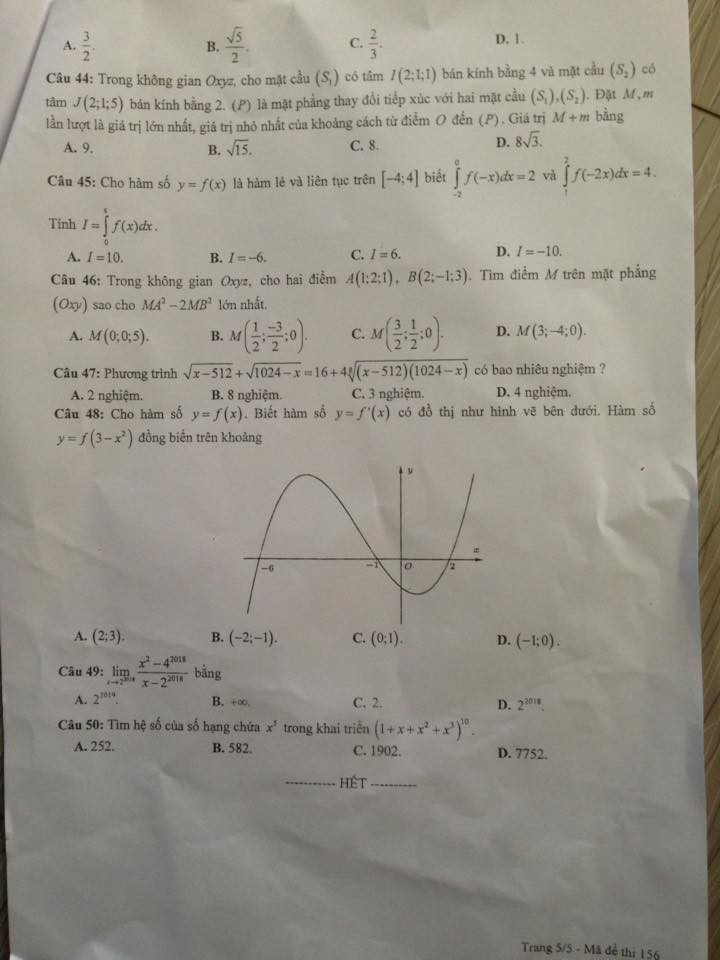 A. 3/2. B. √5/2. C. 2/3. D. 1.
Câu 44: Trong không gian Oxyz, cho mặt cầu (S₁) có tâm I(2;1;1) bán kính bằng 4 và mặt cầu (S₂) có
tâm J(2;1;5) bán kính bằng 2. (P) là mặt phẳng thay đổi tiếp xúc với hai mặt cầu (S₁),(S₂). Đặt M,m
lần lượt là giá trị lớn nhất, giá trị nhỏ nhất của khoảng cách từ điểm O đến (P). Giá trị M+m bằng
A. 9. B. √15. C. 8. D. 8√3.
Câu 45: Cho hàm số y=f(x) là hàm lẻ và liên tục trên [-4;4] biết ∫₋₂⁰ f(-x)dx=2 và ∫₁² f(-2x)dx=4.
Tính I=∫₀⁴ f(x)dx.
A. I=10. B. I=-6. C. I=6. D. I=-10.
Câu 46: Trong không gian Oxyz, cho hai điểm A(1;2;1), B(2;-1;3). Tìm điểm M trên mặt phẳng
(Oxy) sao cho MA²-2MB² lớn nhất.
A. M(0;0;5). B. M(1/2;-3/2;0). C. M(3/2;1/2;0). D. M(3;-4;0).
Câu 47: Phương trình √(x-512)+√(1024-x)=16+4⁸√((x-512)(1024-x)) có bao nhiêu nghiệm ?
A. 2 nghiệm. B. 8 nghiệm. C. 3 nghiệm. D. 4 nghiệm.
Câu 48: Cho hàm số y=f(x). Biết hàm số y=f'(x) có đồ thị như hình vẽ bên dưới. Hàm số
y=f(3-x²) đồng biến trên khoảng
y
x
-6 -1 O 2
A. (2;3). B. (-2;-1). C. (0;1). D. (-1;0).
Câu 49: lim x→2²⁰¹⁸ (x²-4²⁰¹⁸)/(x-2²⁰¹⁸) bằng
A. 2²⁰¹⁹. B. +∞. C. 2. D. 2²⁰¹⁸.
Câu 50: Tìm hệ số của số hạng chứa x⁵ trong khai triển (1+x+x²+x³)¹⁰.
A. 252. B. 582. C. 1902. D. 7752.
----------- HẾT ----------
Trang 5/5 - Mã đề thi 156